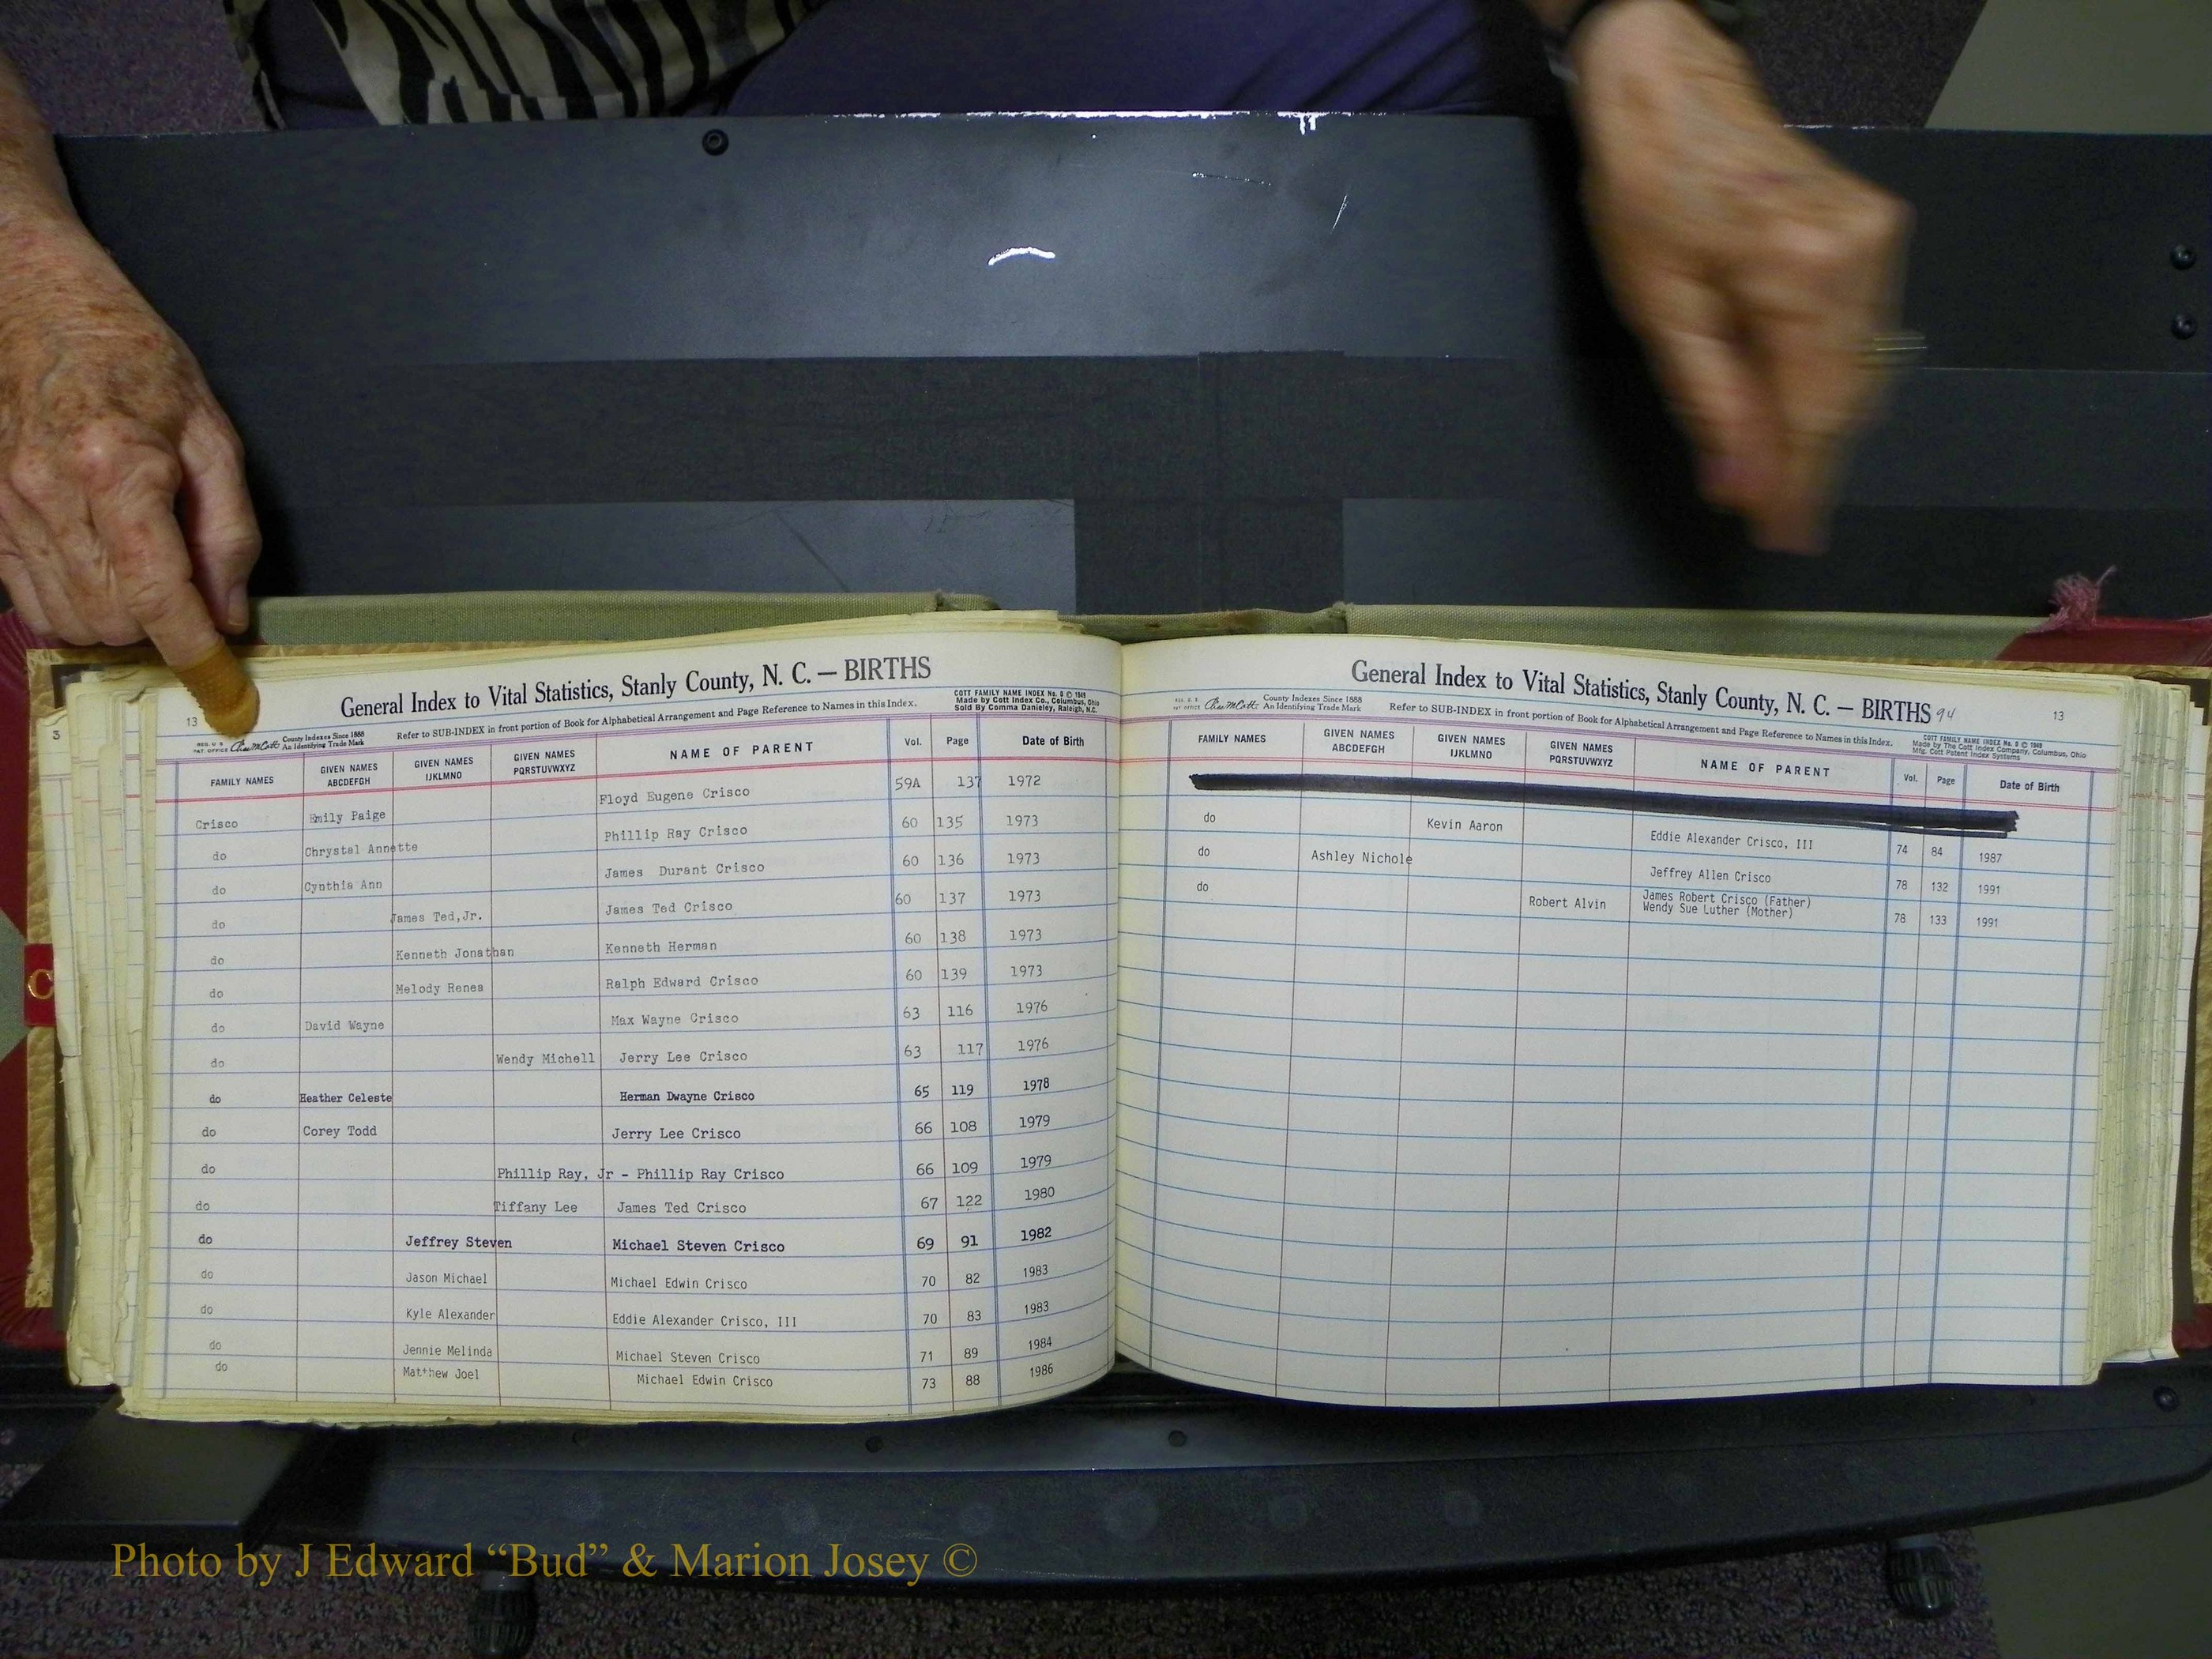 General Index to Vital Statistics, Stanly County, N. C. — BIRTHS
13
REG. U. S. PAT. OFFICE County Indexes Since 1888 An Identifying Trade Mark
Refer to SUB-INDEX in front portion of Book for Alphabetical Arrangement and Page Reference to Names in this Index.
COTT FAMILY NAME INDEX No. 8 © 1949
Made by Cott Index Co., Columbus, Ohio
Sold By Comma Danieley, Raleigh, N.C.
FAMILY NAMES GIVEN NAMES ABCDEFGH GIVEN NAMES IJKLMNO GIVEN NAMES PQRSTUVWXYZ NAME OF PARENT Vol. Page Date of Birth
Crisco Emily Paige Floyd Eugene Crisco 59A 137 1972
do Chrystal Annette Phillip Ray Crisco 60 135 1973
do Cynthia Ann James Durant Crisco 60 136 1973
do James Ted,Jr. James Ted Crisco 60 137 1973
do Kenneth Jonathan Kenneth Herman 60 138 1973
do Melody Renea Ralph Edward Crisco 60 139 1973
do David Wayne Max Wayne Crisco 63 116 1976
do Wendy Michell Jerry Lee Crisco 63 117 1976
do Heather Celeste Herman Dwayne Crisco 65 119 1978
do Corey Todd Jerry Lee Crisco 66 108 1979
do Phillip Ray, Jr - Phillip Ray Crisco 66 109 1979
do Tiffany Lee James Ted Crisco 67 122 1980
do Jeffrey Steven Michael Steven Crisco 69 91 1982
do Jason Michael Michael Edwin Crisco 70 82 1983
do Kyle Alexander Eddie Alexander Crisco, III 70 83 1983
do Jennie Melinda Michael Steven Crisco 71 89 1984
do Matthew Joel Michael Edwin Crisco 73 88 1986
General Index to Vital Statistics, Stanly County, N. C. — BIRTHS 94
13
REG. U. S. PAT. OFFICE County Indexes Since 1888 An Identifying Trade Mark
Refer to SUB-INDEX in front portion of Book for Alphabetical Arrangement and Page Reference to Names in this Index.
COTT FAMILY NAME INDEX No. 8 © 1949
Made by The Cott Index Company, Columbus, Ohio
Mfg. Cott Patent Index Systems
FAMILY NAMES GIVEN NAMES ABCDEFGH GIVEN NAMES IJKLMNO GIVEN NAMES PQRSTUVWXYZ NAME OF PARENT Vol. Page Date of Birth
do Kevin Aaron Eddie Alexander Crisco, III 74 84 1987
do Ashley Nichole Jeffrey Allen Crisco 78 132 1991
do Robert Alvin James Robert Crisco (Father)
Wendy Sue Luther (Mother) 78 133 1991
C
3
Photo by J Edward “Bud” & Marion Josey ©